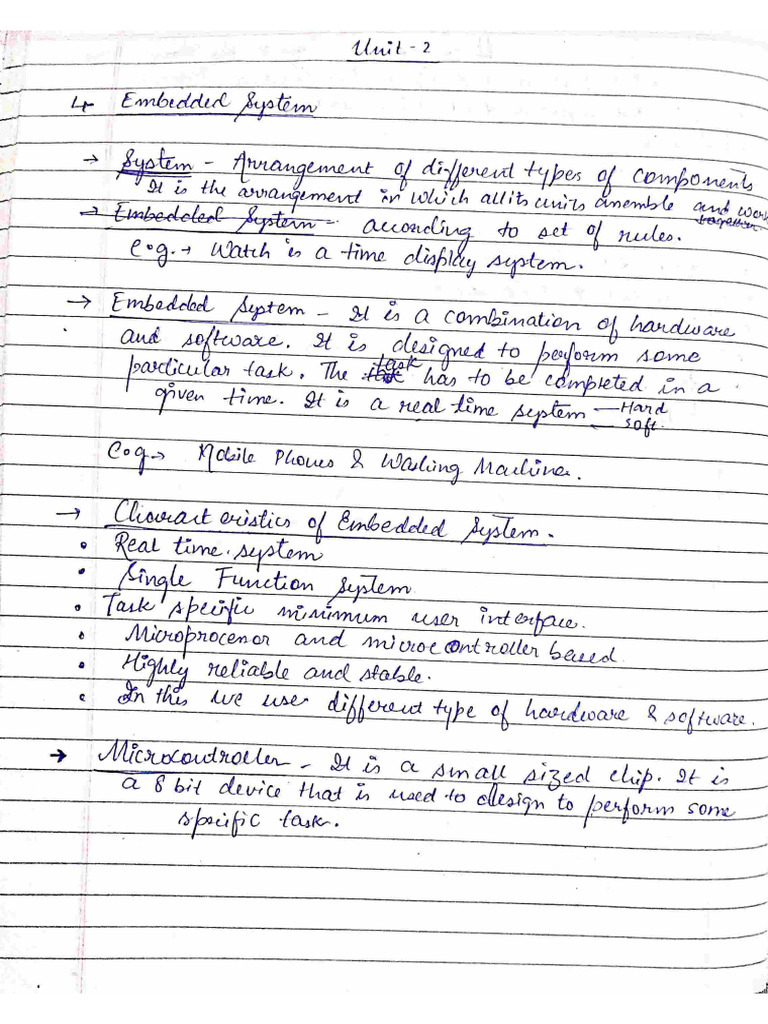 Unit - 2
↳ Embedded System
→ System - Arrangement of different types of components
It is the arrangement in which all its units assemble and work together
→ Embedded System - according to set of rules.
e.g. → Watch is a time display system.
→ Embedded System - It is a combination of hardware
and software. It is designed to perform some
particular task. The task has to be completed in a
given time. It is a real time system — Hard
— Soft
e.g. → Mobile Phones & Washing Machine.
→ Charracteristics of Embedded System.
• Real time system
• Single Function System
• Task specific minimum user interface.
• Microprocessor and microcontroller based
• Highly reliable and stable.
• In this we use different type of hardware & software.
→ Microcontroller - It is a small sized chip. It is
a 8 bit device that is used to design to perform some
specific task.